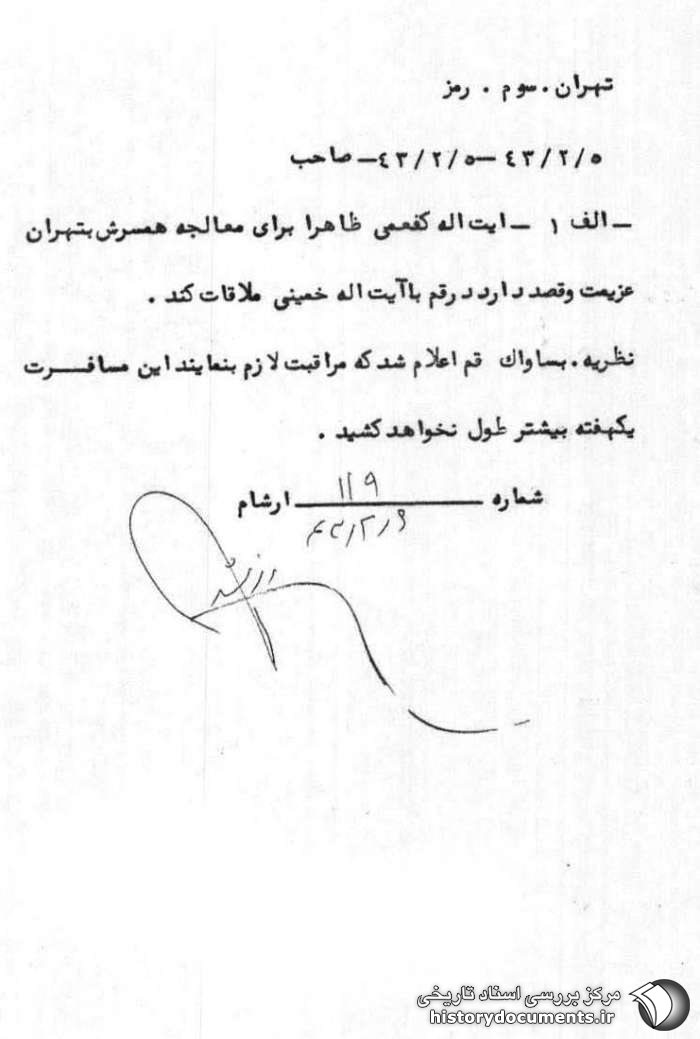 تهران . سوم . رمز
۴۳/۲/۵ – ۴۳/۲/۵ – صاحب
– الف ۱ – ایت اله کفعمی ظاهرا برای معالجه همسرش بتهران
عزیمت وقصد دارد درقم با آیت اله خمینی ملاقات کند .
نظریه . بساواك قم اعلام شد که مراقبت لازم بنمایند این مسافرت
یکهفته بیشتر طول نخواهد کشید .
شماره ۱۱۹ ارشام
۴۳/۲/۶
مرکز بررسی اسناد تاریخی
historydocuments.ir